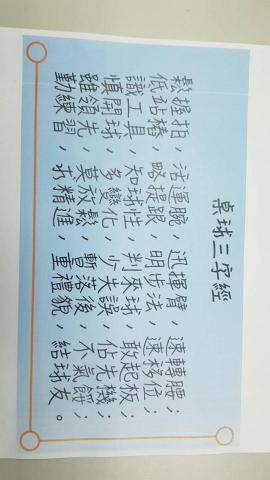 桌球三字經
鬆握拍，活運腕，迅揮臂，速轉腰；
低站樁，略提跟，明步法，速移位；
識工具，知球性，判來球，敢起板；
慎開球，多變化，少失誤，佔先機；
雖領先，莫放鬆，暫落後，不氣餒；
勤練習，求精進，重禮貌，結球友。